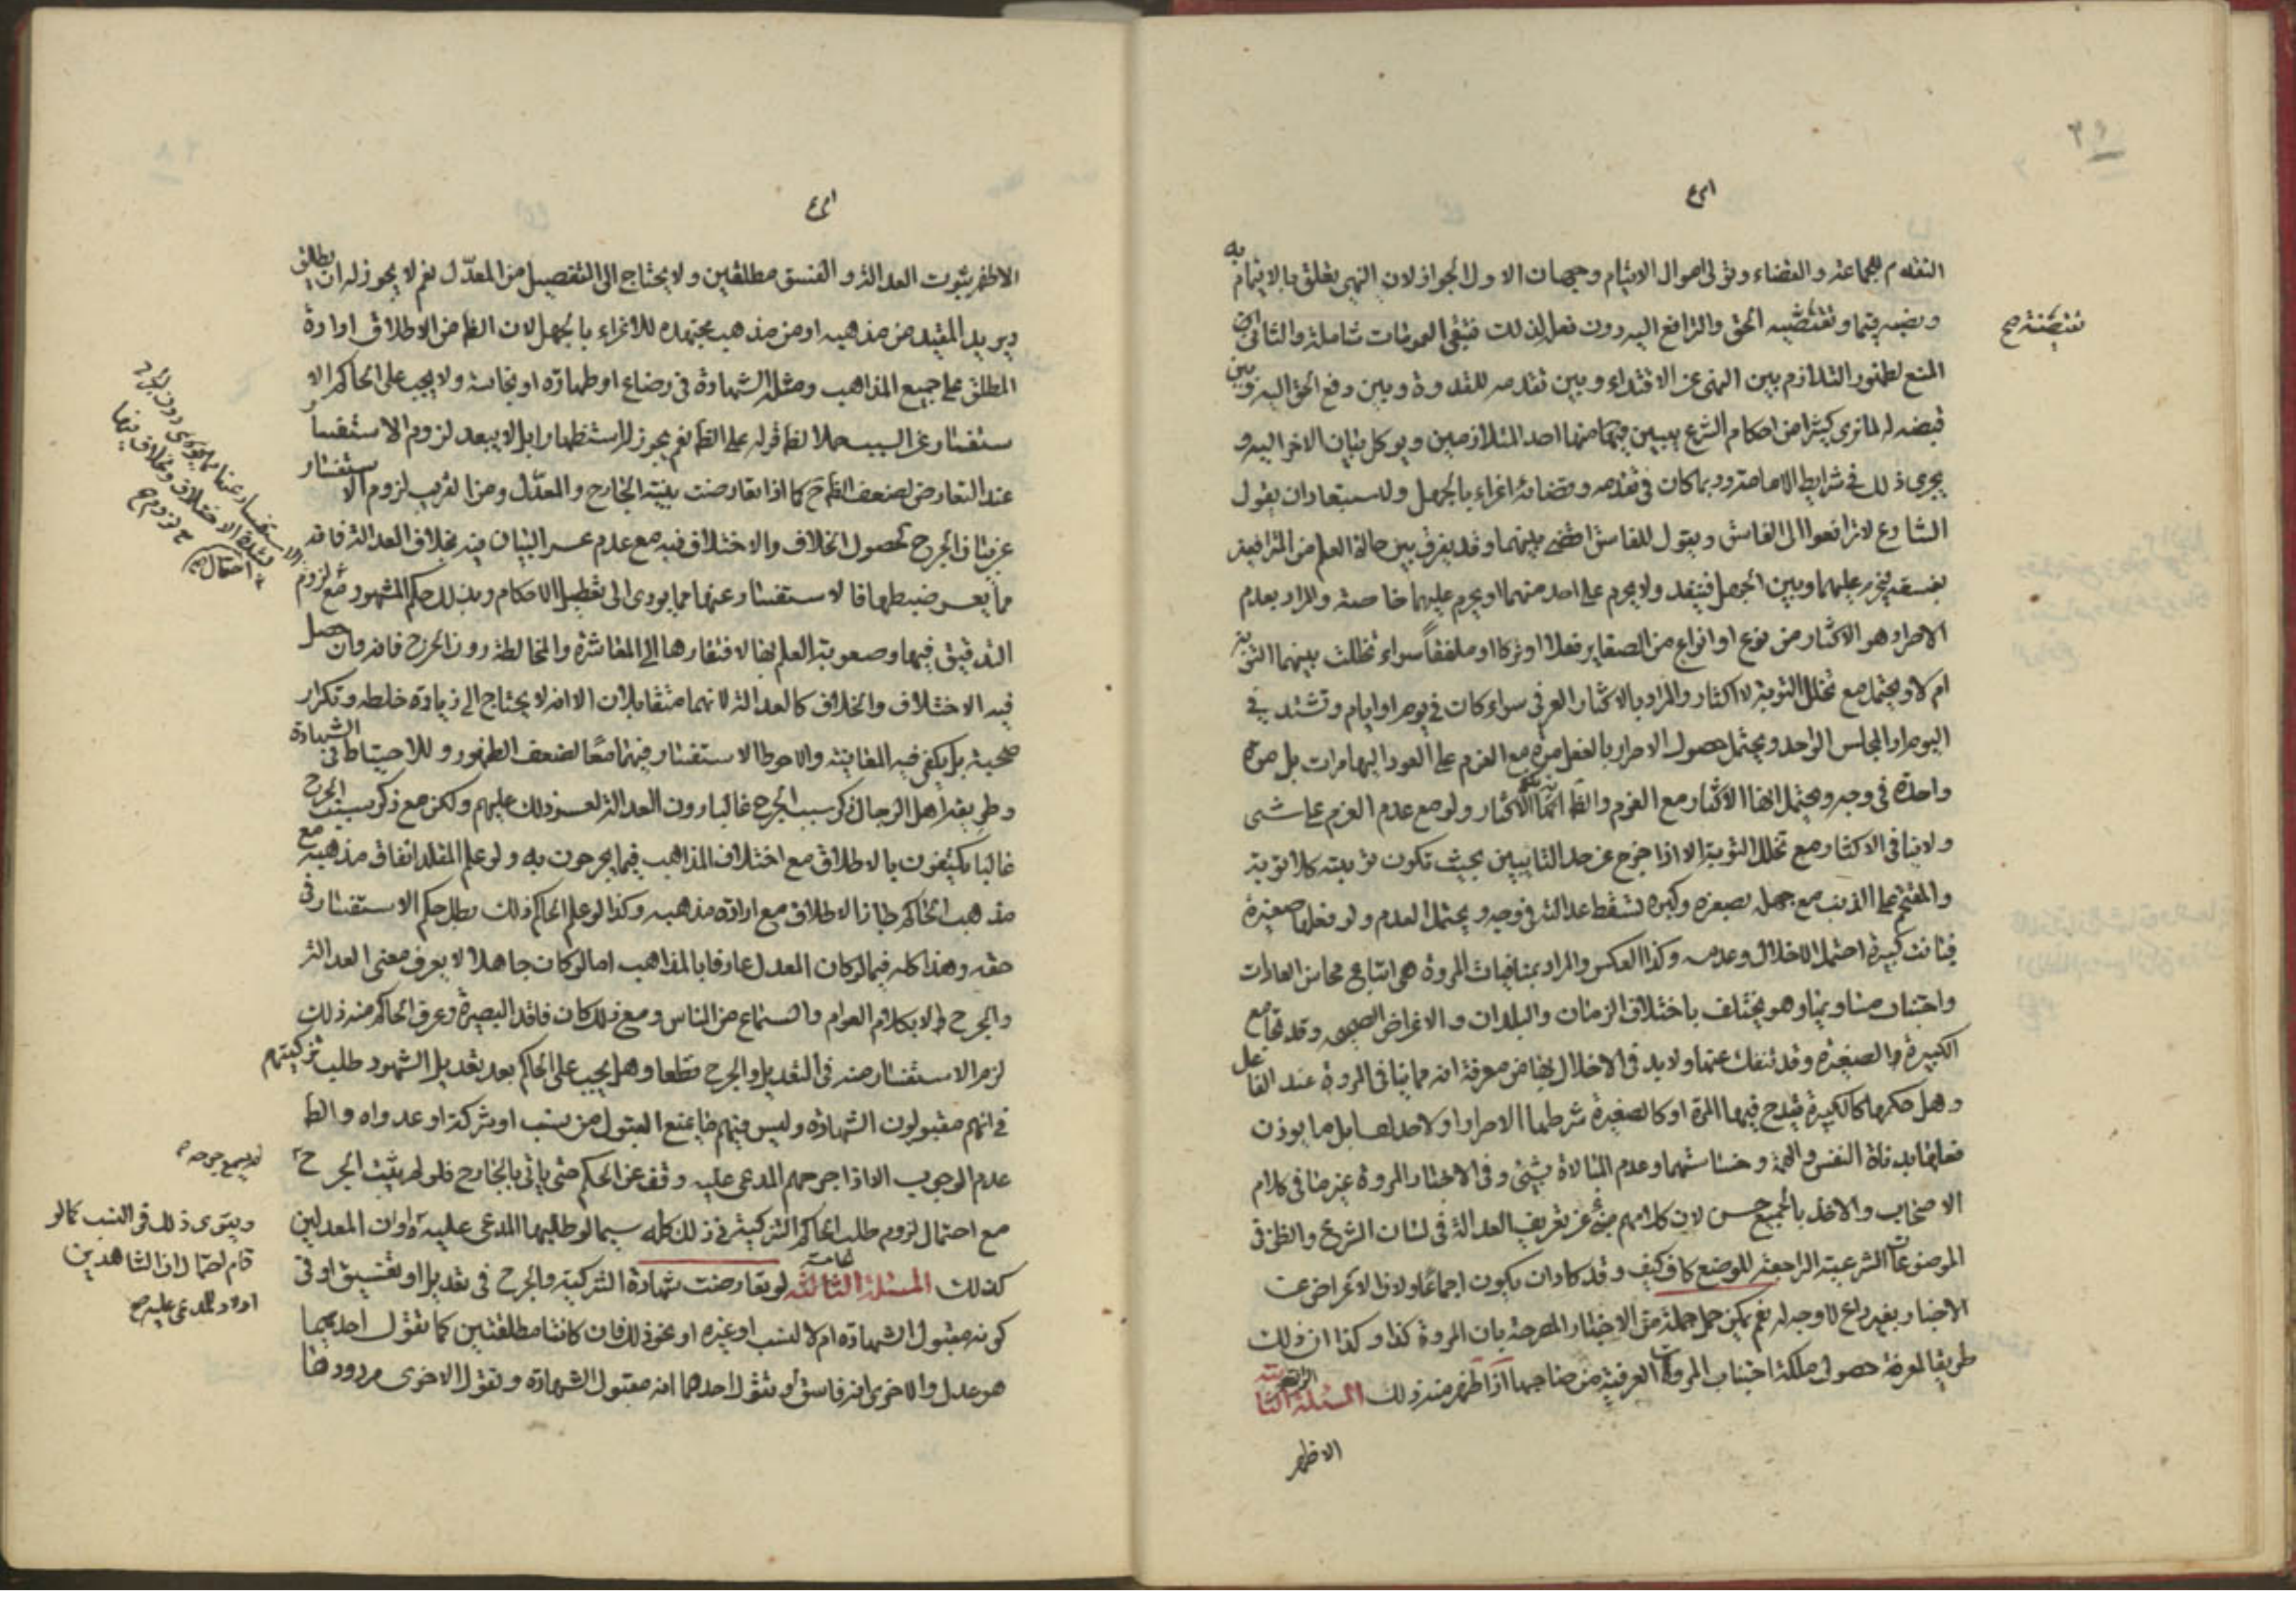 ٣٩
التقدم للجماعة والقضاء وتولى اموال الايتام وجهات الاول الجواز لان النهى تعلق بالايتمام به
وبضه فيما وتقتضيه الحق والترافع اليه دون فعل لذلك فتبقى العمومات شاملة والثانى
تتضمنه صح
المنع لظهور التلازم بين النهى عن الاقتداء وبين تقدمه للقدوة وبين دفع الحق اليه وبين
قبضه له لما نرى كثيرا من احكام الشرع يبين فيها منها احد المتلازمين ويوكل بيان الاخر اليه و
يجرى ذلك فى شرايط الامامة وربما كان فى تقدمه وقضائه اغراء بالجهل ولاستبعاد ان يقول
الشارع لا ترافعوا الى الفاسق ويقول للفاسق اقض بينهما وقد يفرق بين حالة العلم من المترافعين
بفسقه فيحرم عليهما وبين الجهل فينفذ ولا يحرم على احد منهما او يحرم عليهما خاصة والمراد بعدم
الاصرار هو الاكثار من نوع او انواع من الصغاير فعلا او تركا او ملفقا سواء تخللت بينهما التوبة
ام لا ويحتمل مع تخلل التوبة لا اكثار والمراد بالاكثار العرفى سواء كان فى يوم او ايام وتشتد فى
اليوم او المجلس الواحد ويحتمل حصول الاصرار بالفعل مرة مع العزم على العود اليها مرات بل مرة
واحدة فى وجه ويحتمل انها الاكثار مع العزم والظ انها الاكثار ولو مع عدم العزم على شئ
ولا ينافى الاكثار مع تخلل التوبة الا اذا خرج عن حد التائبين بحيث تكون توبته كلا توبة
والمقتحم على الذنب مع جهل بصغره وكبره تسقط عدالته فى وجه ويحتمل العدم ولو فعلها صغيرة
فبانت كبيرة احتمل الاخلال وعدمه وكذا العكس والمراد بمنافيات المروة هى اتباع محاسن العادات
واجتناب مساويها وهو يختلف باختلاف الزمان والبلدان والاغراض وقد تجامع
الكبيرة والصغيرة وقد تنفك عنها ولا بد فى الاخلال بها من معرفة انه مما ينافى المروة عند الفاعل
وهل حكمها كالكبيرة يقدح فيها المرة او كالصغيرة شرطها الاصرار او لا بل ما يوذن
فعلها بدناة النفس والهمة وخساستهما وعدم المبالاة بشئ وفى الاخبار المروة غير ما فى كلام
الاصحاب والاخذ بالجميع حسن لان كلامهم منبئ عن تعريف العدالة فى لسان الشرع والظن فى
الموضوعات الشرعية الراجعة للوضع كاف كيف وقد كاد ان يكون اجماعا ولا اذا لاعراض عن
الاخبار بغير داع لا وجه له نعم يمكن حمل جملة من الاخبار المصرحة بان المروة كذا وكذا ان ذلك
طريقا لمعرفة حصول ملكة اجتناب المروة العرفية من صاحبها اذا ظهر منه ذلك المسئلة الثانية الرابعة
الاظهر
الاظهر ثبوت العدالة والفسق مطلقين ولا يحتاج الى التفصيل من المعدّل نعم لا يجوز له ان يطلق
ويريد المقيد من مذهبه او من مذهب مجتهده للاغراء بالجهل لان الظ من الاطلاق ارادة
المطلق على جميع المذاهب ومثله الشهادة فى رضاع او طهارة او نجاسة ولا يجب على الحاكم الا
ستفسار عن السبب حملا لظ قوله على الظ نعم يجوز له استظهارا بل لا يبعد لزوم الاستفسار
عند التعارض لضعف الظ ح كما اذا تعارضت بينة الجارح والمعدّل ومن القريب لزوم الاستفسار
عن بيان الجرح لحصول الخلاف والاختلاف فيه مع عدم عسر البيان فيه بخلاف العدالة فانه
مما يعسر ضبطها فالاستفسار عنها مما يودى الى تعطيل الاحكام وبذلك حكم المشهور مع لزوم
التدقيق فيها وصعوبة العلم بها لافتقارها الى المعاشرة والمخالطة دون الجرح فانه وان حصل
فيه الاختلاف والخلاف كالعدالة لانهما متقابلان الا انه لا يحتاج الى زيادة خلطة وتكرار
صحبة بل يكفى فيه المعاينة والاحوط الاستفسار فيهما معا لضعف الظهور وللاحتياط فى الشهادة
وطريقة اهل الرجال ذكر سبب الجرح غالبا دون العدالة لعسر ذلك عليهم ولكن مع ذكر سبب الجرح
غالبا يكتفون بالاطلاق مع اختلاف المذاهب فيما يجرحون به ولو علم المقلد اتفاق مذهبه مع
مذهب الحاكم جاز الاطلاق مع ارادة مذهبه وكذا لو علم الحاكم ذلك بطل حكم الاستفسار فى
حقه وهذا كله فيما لو كان المعدل عارفا بالمذاهب اما لو كان جاهلا لا يعرف معنى العدالة
والجرح الا بكلام العوام والسماع من الناس ومع ذلك كان فاقد البصيرة وعرف الحاكم منه ذلك
لزم الاستفسار منه فى التعديل والجرح قطعا وهل يجب على الحاكم بعد تعديل الشهود طلب تزكيتهم
فى انهم مقبولون الشهادة وليس فيهم ما يمنع القبول من نسب او شركة او عداوة والظ
عدم الوجوب الا اذا جرحهم المدعى عليه وقف عن الحكم حتى ياتى بالجارح فلو لم يثبت الجرح
لم يسمع جرحه
مع احتمال لزوم طلب الحاكم التزكية فى ذلك كله سيما لو طلبها المدعى عليه او ان المعدلين
ويقوى ذلك فى النسب كما لو
قام احتمال ان الشاهدين
اولاد للمدعى عليه صح
كذلك المسئلة الثالثة لو تعارضت شهادة التزكية والجرح فى تعديل او تفسيق او فى
كونه مقبول الشهادة ام لا لنسب او غيره او نحو ذلك فان كانتا مطلقتين كما تقول احديهما
هو عدل والاخرى انه فاسق او تقول احدهما انه مقبول الشهادة وتقول الاخرى مردودها